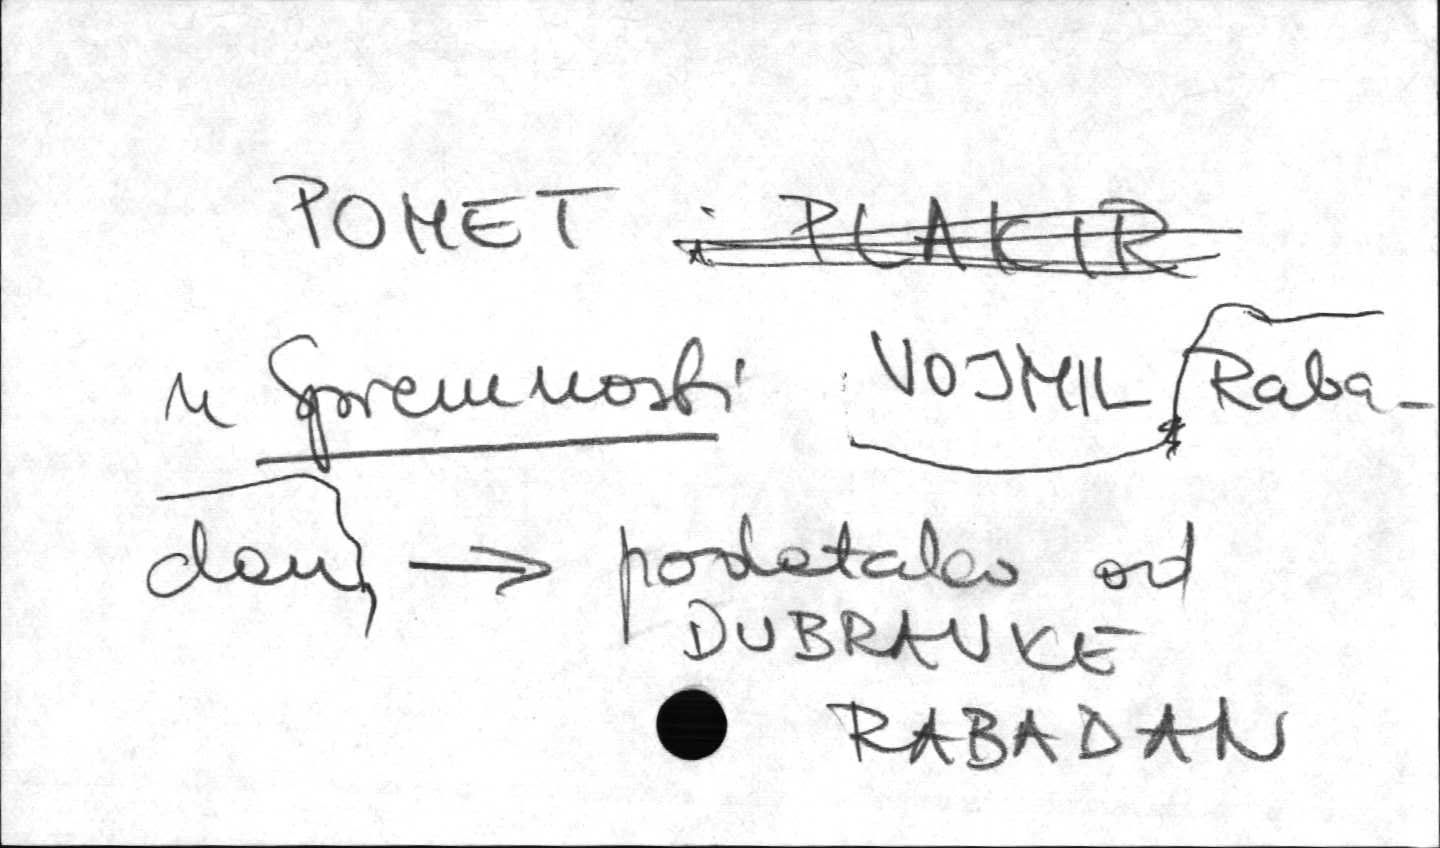 POMET i PLAKIR
u Spremnosti VOJMIL Raba-
dan → podatak od
DUBRAVKE
RABADAN